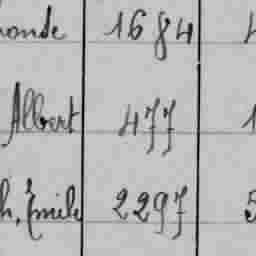 onde 1684
Albert 477
h, Émile 2297 5